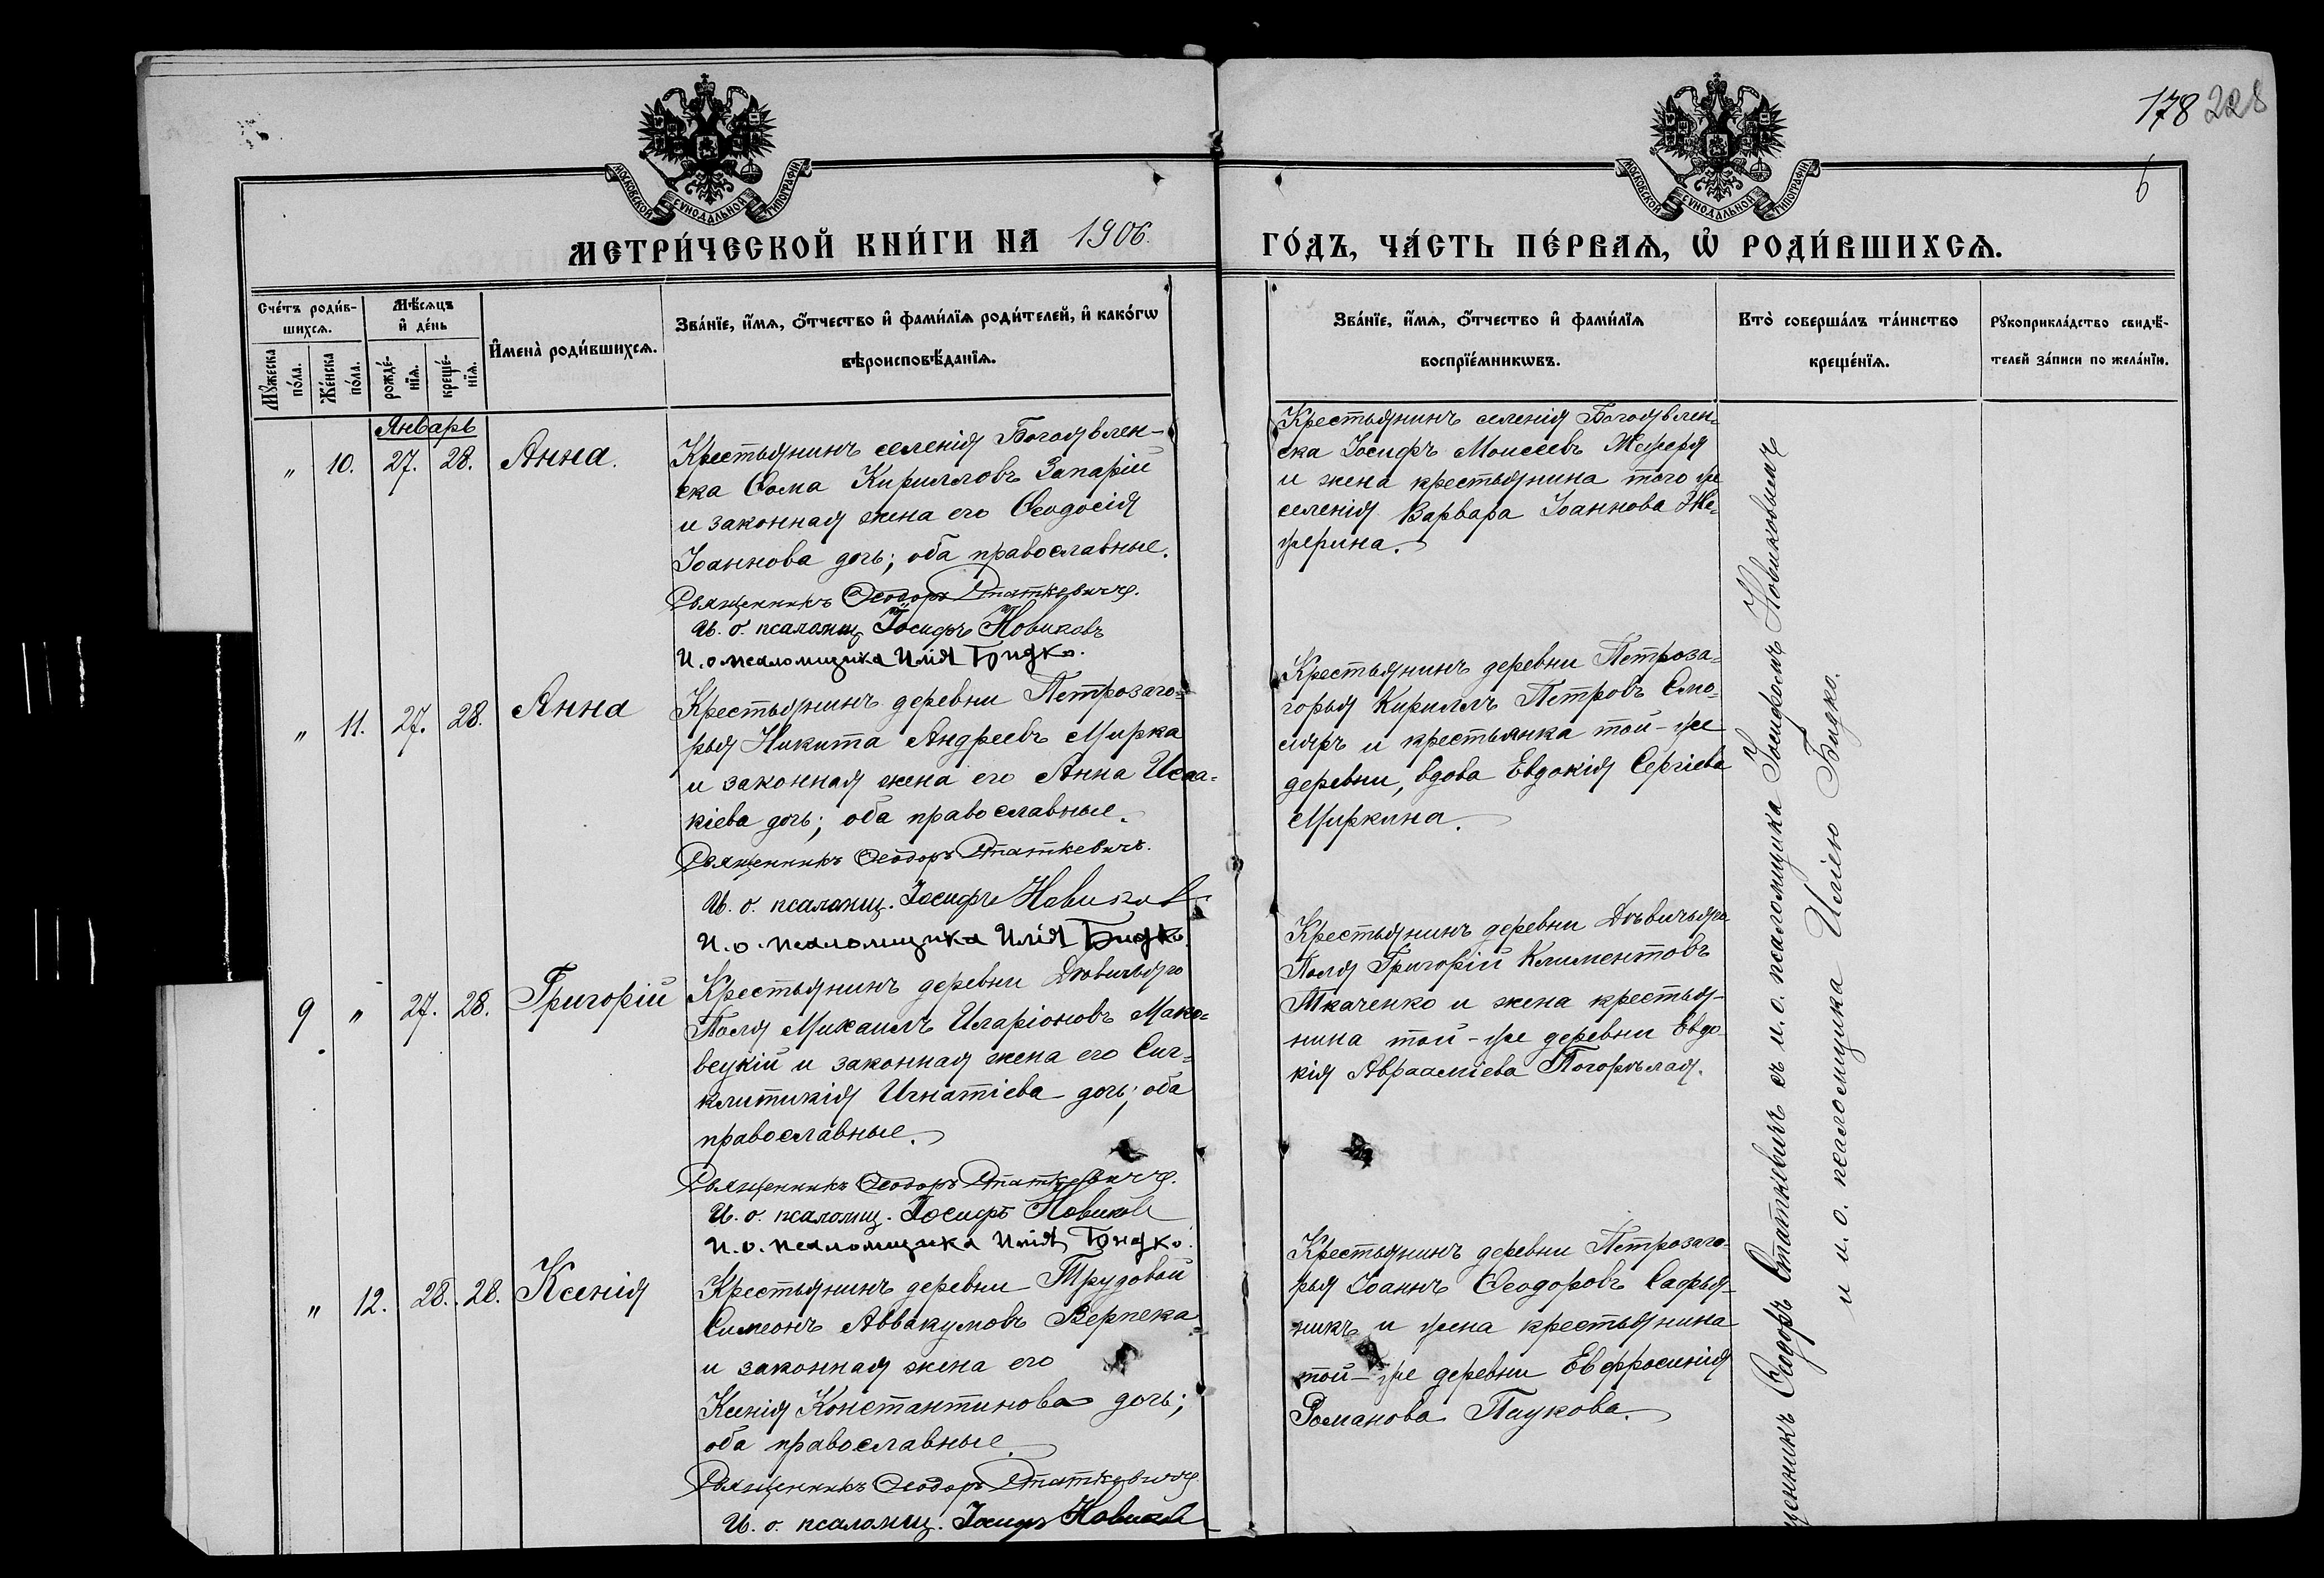 178 228
6
МОСКОВСКОЙ СѴНОДАЛЬНОЙ ТИПОГРАФІИ
МОСКОВСКОЙ СѴНОДАЛЬНОЙ ТИПОГРАФІИ
МЕТРИ́ЧЕСКОЙ КНИ́ГИ НА 1906.
ГО́ДЪ, ЧА́СТЬ ПЕ́РВАѦ, Ѡ҆ РОДИ́ВШИХСѦ.
Сче́тъ роди́в-
шихсѧ.
Мꙋ́жеска
по́ла.
Же́нска
по́ла.
Мѣ́сѧцъ
и҆ де́нь
рожде́-
нїѧ.
креще́-
нїѧ.
И҆мена̀ роди́вшихсѧ.
Зва́нїе, и҆́мѧ, ѻ҆́тчество и҆ фами́лїѧ роди́телей, и҆ како́гѡ
вѣроисповѣ́данїѧ.
Зва́нїе, и҆́мѧ, ѻ҆́тчество и҆ фами́лїѧ
воспрїе́мникѡвъ.
Кто̀ соверша́лъ та́инство
креще́нїѧ.
Рꙋкоприкла́дство свидѣ́-
телей за́писи по жела́нїю.
Январь
" 10. 27. 28. Анна.
Крестьянинъ селенія Богоявлен-
ска Ѳома Кирилловъ Запарій
и законная жена его Ѳеодосія
Іоаннова дочь; оба православные.
Священникъ Ѳеодоръ Статкевичъ.
И. о. псаломщ. Іосифъ Новиковъ
И. о псаломщика Илія Бридко.
Крестьянинъ селенія Богоявлен-
ска Іосифъ Моисеевъ Жежеря
и жена крестьянина того же
селенія Варвара Іоаннова Же-
жерина.
" 11. 27. 28. Анна
Крестьянинъ деревни Петрозаго-
рья Никита Андреевъ Мирка
и законная жена его Анна Исаа-
кіева дочь; оба православные.
Священникъ Ѳеодоръ Статкевичъ.
И. о. псаломщ. Іосифъ Новиковъ
И. о. псаломщика Илія Бридко.
Крестьянинъ деревни Петроза-
горья Кириллъ Петровъ Смо-
ляръ и крестьянка той-же
деревни, вдова Евдокія Сергіева
Миркина.
9 " 27. 28. Григорій
Крестьянинъ деревни Дѣвичьяго
Поля Михаилъ Иларіоновъ Мако-
вецкій и законная жена его Син-
клитикія Игнатіева дочь; оба
православные.
Священникъ Ѳеодоръ Статкевичъ.
И. о. псаломщ. Іосифъ Новиковъ
И. о. псаломщика Илія Бридко.
Крестьянинъ деревни Дѣвичьяго
Поля Григорій Климентовъ
Ткаченко и жена крестья-
нина той-же деревни Евдо-
кія Авраамиева Погорѣлая.
" 12. 28. 28. Ксенія
Крестьянинъ деревни Трудовой
Симеонъ Аввакумовъ Верпека
и законная жена его
Ксенія Константинова дочь;
оба православные.
Священникъ Ѳеодоръ Статкевичъ.
И. о. псаломщ. Іосифъ Новиковъ
Крестьянинъ деревни Петрозаго-
рья Іоаннъ Ѳеодоровъ Сафья-
никъ и жена крестьянина
той-же деревни Евфросинія
Романова Паукова.
щенникъ Ѳеодоръ Статкевичъ съ и. о. псаломщика Іосифомъ Новиковымъ
и и. о. псаломщика Иліею Бридко.